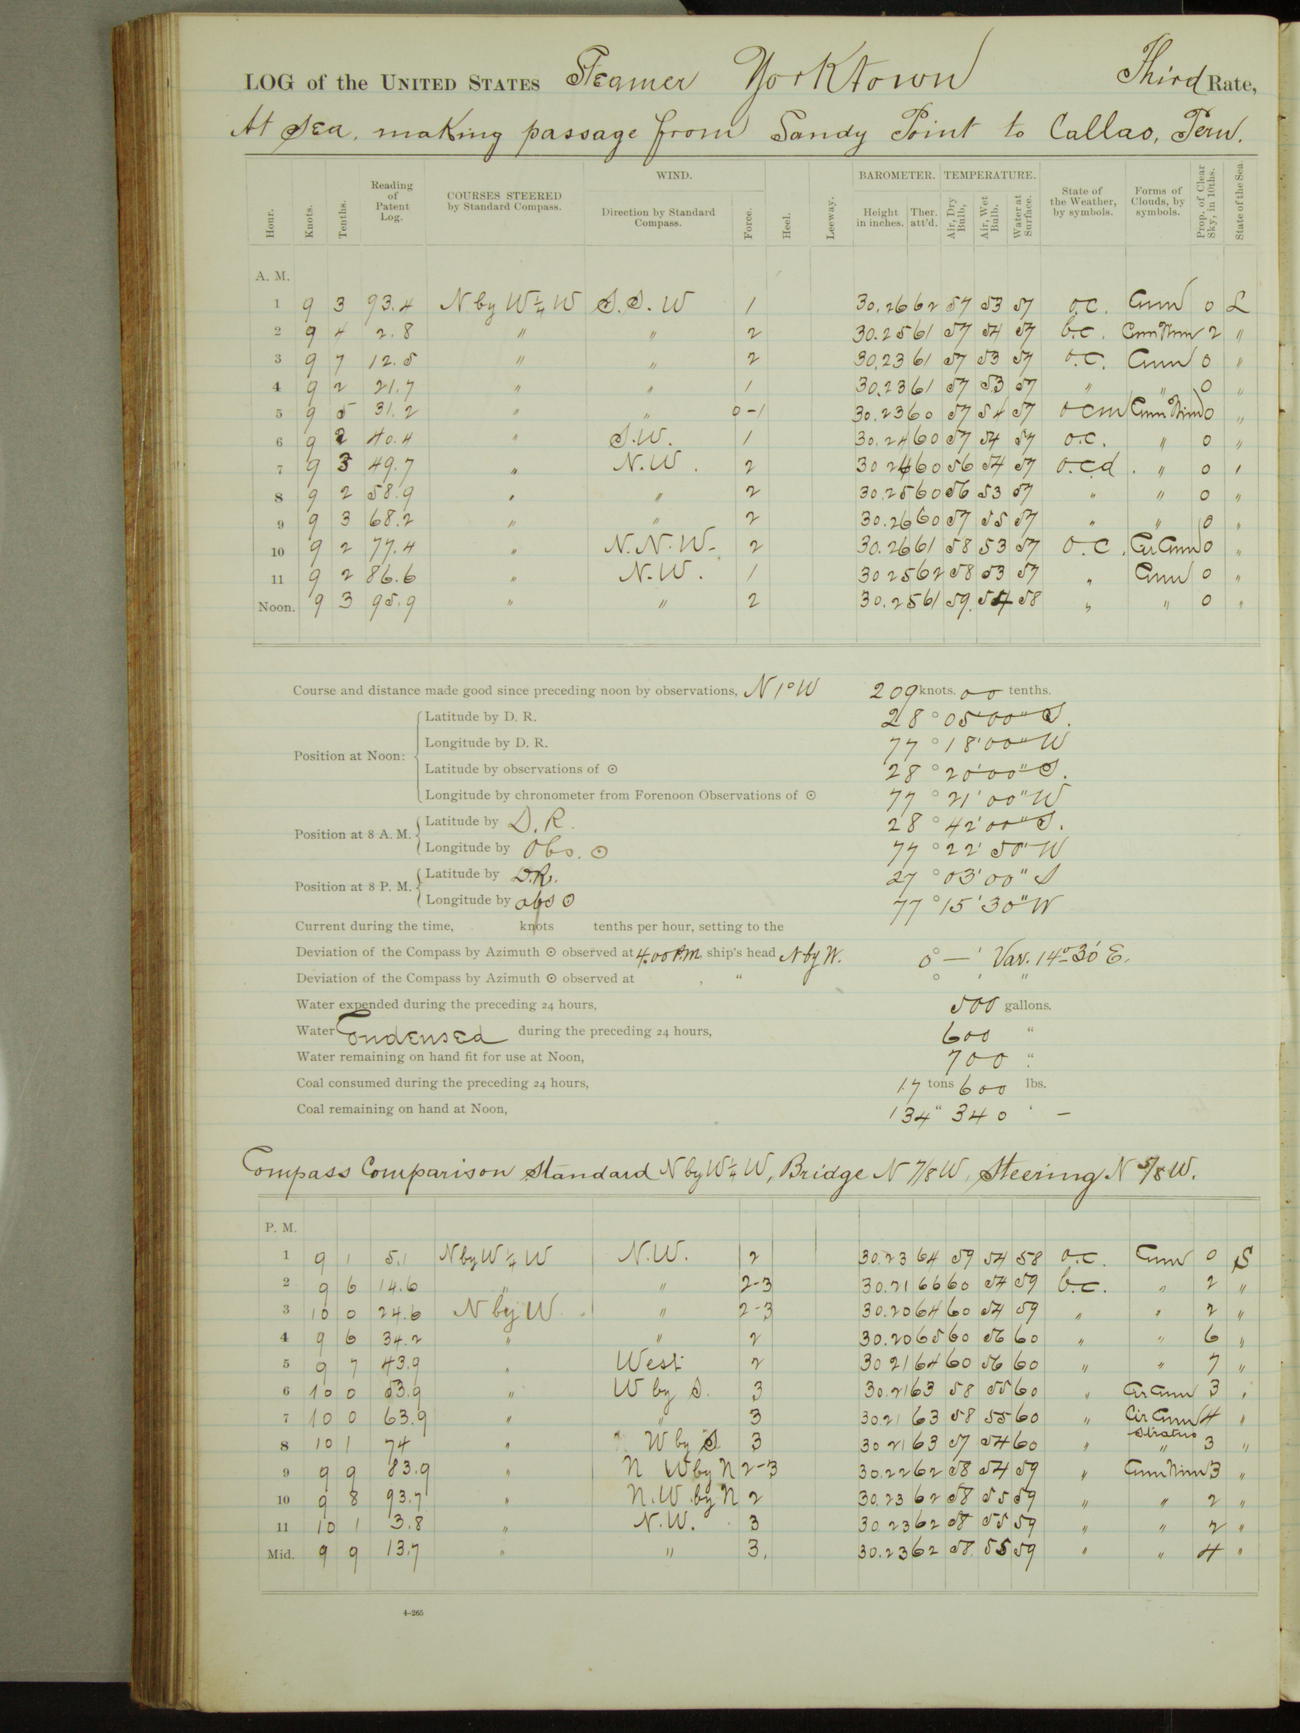 LOG of the UNITED STATES Steamer Yorktown Third Rate,
At Sea, making passage from Sandy Point to Callao, Peru.
Hour. Knots. Tenths. Reading of Patent Log. COURSES STEERED by Standard Compass. WIND. Direction by Standard Compass. Force. Heel. Leeway. BAROMETER. Height in inches. Ther. att'd. TEMPERATURE. Air, Dry Bulb. Air, Wet Bulb. Water at Surface. State of the Weather, by symbols. Forms of Clouds, by symbols. Prop. of Clear Sky, in 10ths. State of the Sea.
A. M.
1 9 3 93.4 N by W ¼ W S.S.W 1 30.26 62 57 53 57 o.c. Cum 0 L
2 9 4 2.8 " " 2 30.25 61 57 54 57 b.c. Cum Nim 2 "
3 9 7 12.5 " " 2 30.23 61 57 53 57 o.c. Cum 0 "
4 9 2 21.7 " " 1 30.23 61 57 53 57 " " 0 "
5 9 5 31.2 " " 0-1 30.23 60 57 54 57 ocm Cum Nim 0 "
6 9 2 40.4 " S.W. 1 30.24 60 57 54 57 o.c. " 0 "
7 9 3 49.7 " N.W. 2 30 24 60 56 54 57 o.c.d. " 0 "
8 9 2 58.9 " " 2 30.25 60 56 53 57 " " 0 "
9 9 3 68.2 " " 2 30.26 60 57 55 57 " " 0 "
10 9 2 77.4 " N.N.W. 2 30.26 61 58 53 57 o.c. Cir Cum 0 "
11 9 2 86.6 " N.W. 1 30 25 62 58 53 57 " Cum 0 "
Noon. 9 3 95.9 " " 2 30.25 61 59 54 58 " " 0 "
Course and distance made good since preceding noon by observations, N 1° W 209 knots. 00 tenths.
Position at Noon: Latitude by D. R. 28 ° 05' 00" S.
Longitude by D. R. 77 ° 18' 00" W
Latitude by observations of ☉ 28 ° 20' 00" S.
Longitude by chronometer from Forenoon Observations of ☉ 77 ° 21' 00" W
Position at 8 A. M. Latitude by D.R. 28 ° 42' 00" S.
Longitude by Obs. ☉ 77 ° 22' 50" W
Position at 8 P. M. Latitude by D.R. 27 ° 03' 00" S
Longitude by obs ☉ 77 ° 15' 30" W
Current during the time, knots tenths per hour, setting to the
Deviation of the Compass by Azimuth ☉ observed at 4.00 P.M. ship's head N by W. 0° — ' Var. 14° 30' E.
Deviation of the Compass by Azimuth ☉ observed at , " ° ' "
Water expended during the preceding 24 hours, 500 gallons.
Water Condensed during the preceding 24 hours, 600 "
Water remaining on hand fit for use at Noon, 700 "
Coal consumed during the preceding 24 hours, 17 tons 600 lbs.
Coal remaining on hand at Noon, 134 " 340 " —
Compass Comparison Standard N by W ¼ W, Bridge N 7/8 W, Steering N 5/8 W.
P. M.
1 9 1 5.1 N by W ¼ W N.W. 2 30.23 64 59 54 58 o.c. Cum 0 S
2 9 6 14.6 " " 2-3 30.21 66 60 54 59 b.c. " 2 "
3 10 0 24.6 N by W " 2-3 30.20 64 60 54 59 " " 2 "
4 9 6 34.2 " " 2 30.20 65 60 56 60 " " 6 "
5 9 7 43.9 " West 2 30 21 64 60 56 60 " " 7 "
6 10 0 53.9 " W by S. 3 30.21 63 58 55 60 " Cir Cum 3 "
7 10 0 63.9 " " 3 30 21 63 58 55 60 " Cir Cum Stratus 4 "
8 10 1 74 " W by S 3 30 21 63 57 54 60 " " 3 "
9 9 9 83.9 " N W by N 2-3 30.22 62 58 54 59 " Cum Nim 3 "
10 9 8 93.7 " N.W. by N 2 30.23 62 58 55 59 " " 2 "
11 10 1 3.8 " N.W. 3 30 23 62 58 55 59 " " 2 "
Mid. 9 9 13.7 " " 3. 30.23 62 58 55 59 " " 4 "
4-265